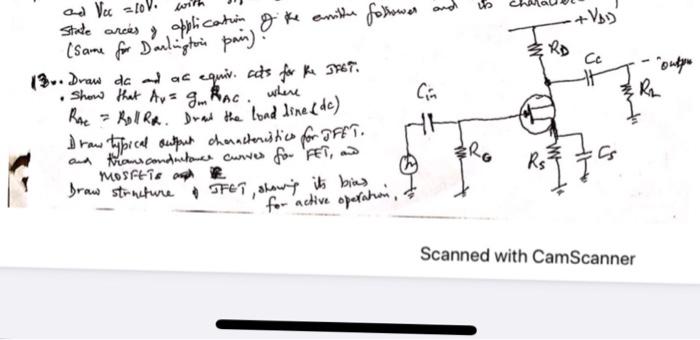 and Vcc = 10V. with
State areas of application of the emitter follower and its
(same for Darlington pair).
13.. Draw dc and ac equiv. ckts for the JFET.
• Show that Av = gm RAC. where
RAC = RD || RL. Draw the load line (dc)
Draw typical output characteristics for JFET.
and transconductance curves for FET, and
MOSFETs
Draw structure of JFET, showing its bias
for active operation.
+VDD
RD
Cc
output
RL
Cin
RG
RS
CS
Scanned with CamScanner